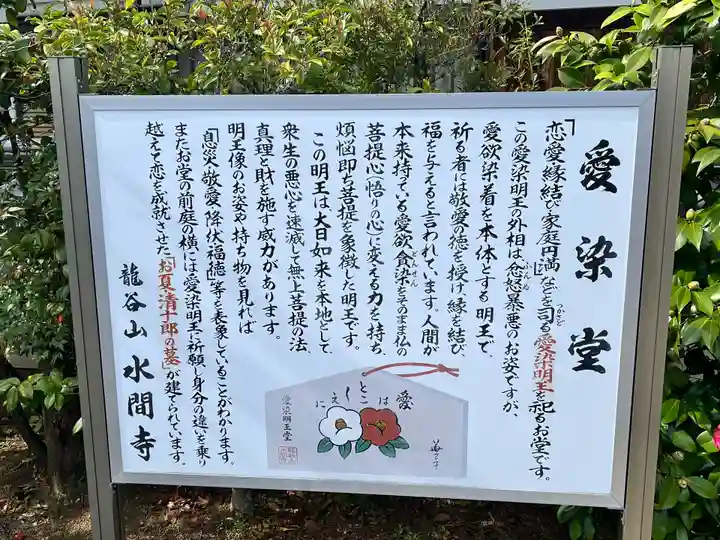 愛染堂
「恋愛、縁結び、家庭円満」などを司る愛染明王を祀るお堂です。
つかさど
この愛染明王の外相は忿怒暴悪のお姿ですが、
ふんぬ
愛欲染着を本体とする明王で、
祈る者には敬愛の徳を授け縁を結び、
福を与えると言われています。人間が
本来持っている愛欲貪染をそのまま仏の
とんぜん
菩提心（悟りの心）に変える力を持ち、
煩悩即ち菩提を象徴した明王です。
この明王は大日如来を本地として、
衆生の悪心を速滅して無上菩提の法、
真理と財を施す威力があります。
明王像のお姿や持ち物を見れば
「息災、敬愛、降伏、福徳」等を表象していることがわかります。
またお堂の前庭の横には愛染明王に祈願し身分の違いを乗り
越えて恋を成就させた「お夏清十郎の墓」が建てられています。
龍谷山 水間寺
愛は
とこ
しえに
愛染明王堂